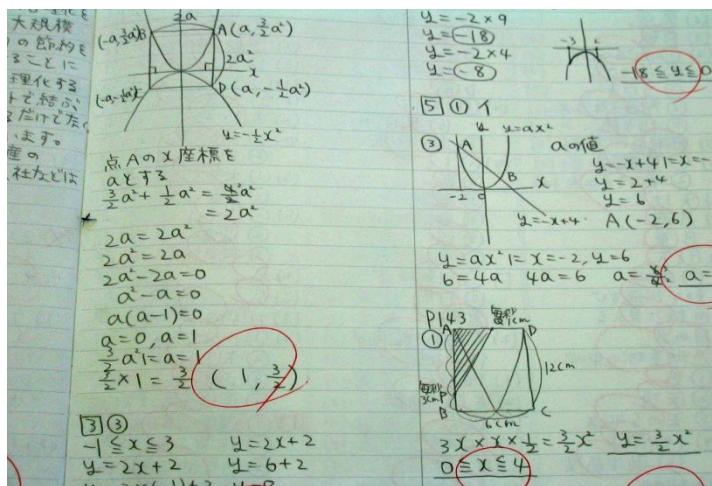 大規模
の節約を
ることに
理化する
トで結ぶ
るだけでなく
います。
産の
社などは
2a
(-a, 3/2a²)B
A(a, 3/2a²)
2a²
x
(-a, -1/2a²)
D(a, -1/2a²)
y=-1/2x²
点Aのx座標を
aとする
3/2a²+1/2a²=4/2a²
=2a²
2a=2a²
2a²=2a
2a²-2a=0
a²-a=0
a(a-1)=0
a=0, a=1
3/2a²にa=1
3/2×1=3/2 (1, 3/2)
3 ③
-1≦x≦3 y=2x+2
y=2x+2 y=6+2
y=-2×9
y=-18
y=-2×4
y=-8
-3 2
-18≦y≦0
5 ① イ
③ A y y=ax² aの値
B x
-2 0
y=-x+4
y=-x+4にx=-
y=2+4
y=6
A(-2,6)
y=ax²にx=-2, y=6
6=4a 4a=6 a= a=
P143 毎秒1cm
① A D
12cm
毎秒3cm P
B 6cm C
3x×x×1/2=3/2x² y=3/2x²
0≦x≦4